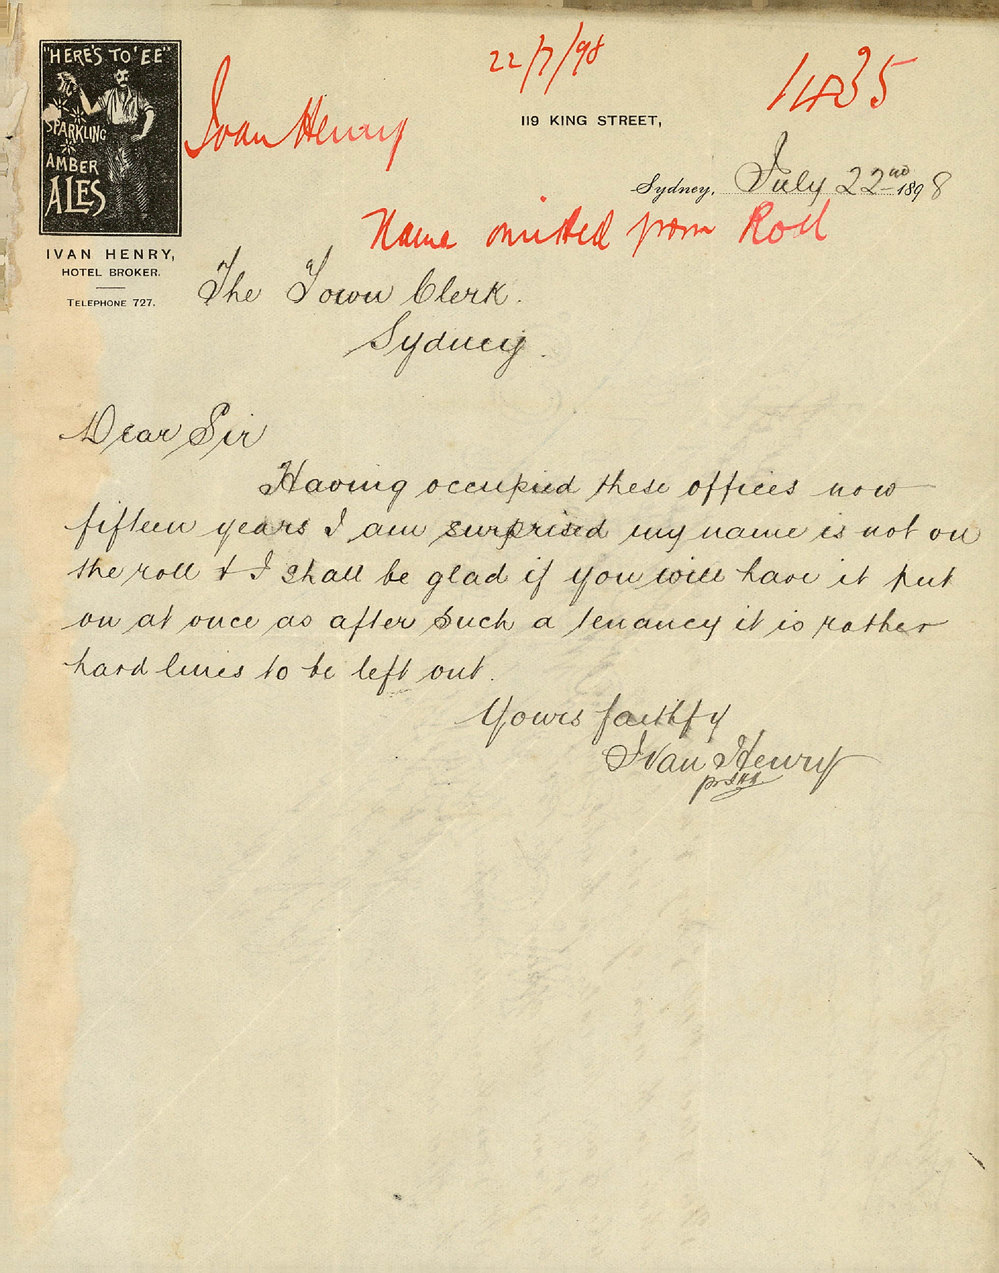 "HERE'S TO 'EE"
SPARKLING
AMBER
ALES
IVAN HENRY,
HOTEL BROKER.
TELEPHONE 727.
Ivan Henry
22/7/98
1435
119 KING STREET,
Sydney, July 22nd 1898
Name omitted from Roll
The Town Clerk.
Sydney.
Dear Sir
Having occupied these offices now
fifteen years I am surprised my name is not on
the roll & I shall be glad if you will have it put
on at once as after such a tenancy it is rather
hard lines to be left out.
Yours faithfy
Ivan Henry
pr